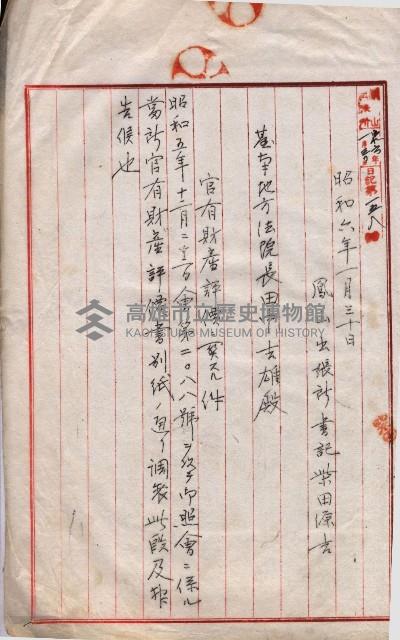 昭和六年一月三十日
鳳山出張所書記柴田源吉
臺南地方法院長田 雄殿
官有財產評價 件
昭和五年十二月二 會第二〇八八號ヲ 御照會ニ係ル
當所官有財產評價書別紙ノ通リ調製此段及報
告候也
高雄市立歷史博物館
KAOHSIUNG MUSEUM OF HISTORY